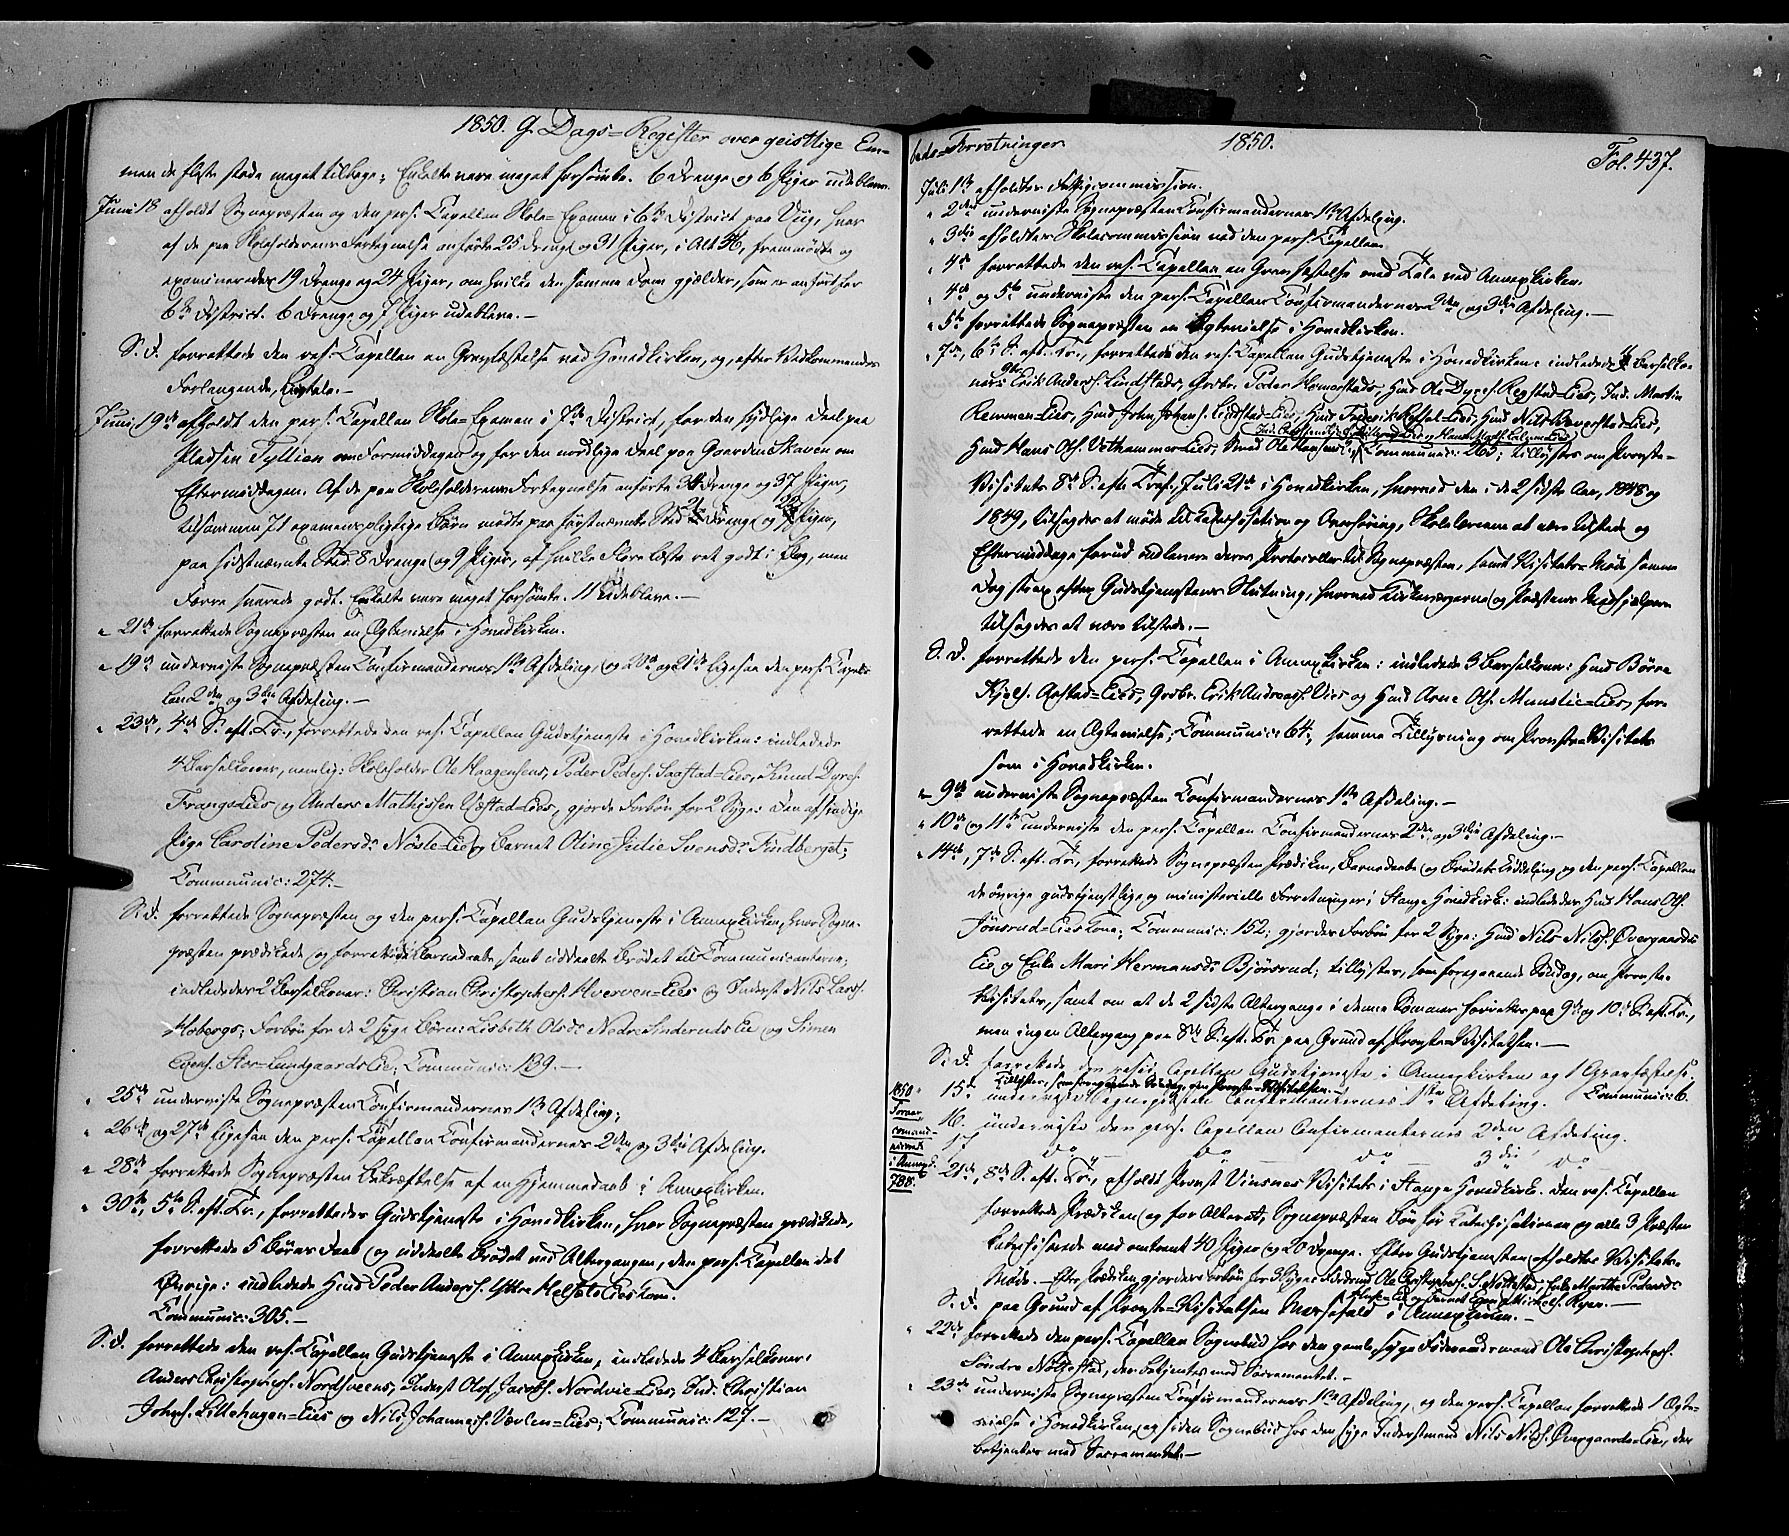 1850. G. Dags=Register over geistlige Em=
men de fleste stode meget tilbage; Enkelte vare meget forsömte. 6 Drenge og 6 Piger udebleve.
Juni 18 afholdt Sognepræsten og den pers. Capellan Skole=Examen i 6te District paa Viig, hvor
af de paa Skoleholderens Fortegnelse anförte 25 Drenge og 31 Piger, i Alt 56, fremmödte og
examineredes 19 Drenge og 24 Piger, om hvilke den samme Dom gjælder, som er anfört for
6te District. 6 Drenge og 7 Piger udebleve.—
S. D. forrettede den res. Capellan en Gravfæstelse ved Hovedkirken, og, efter Vedkommendes
Forlangende, Ligtale.—
Juni 19de afholdt den pers. Capellan Skole Examen i 7de District, for den sydlige Deel paa
Pladsen Tyllien om Formiddagen og for den nordlige Deel paa Gaarden Skaven om
Eftermiddagen. Af de paa Skoleholderens Fortegnelse anförte 34 Drenge og 37 Piger,
tilsammen 71 examenspligtige Börn mödte paa förstnævnte Sted 21 Drenge og 22 Piger,
paa sidstnævnte Sted 8 Drenge og 9 Piger, af hvilke Flere læste ret godt i Bog, men
Færre svarede godt. Enkelte vare meget forsömte. 11 udebleve.—
" 21de forrettede Sognepræsten en Ægtevielse i Hovedkirken.
" 19de underviste Sognepræsten Confirmandernes 1ste Afdeling, og 20de og 21de ligesaa den pers. Capel=
lan 2den og 3die Afdeling.—
" 23de, 4de S. eft. Tr., forrettede den res. Capellan Gudstjeneste i Hovedkirken: indledede
4 Barselkoner, nemlig: Skoleholder Ole Haagensens, Peder Peders. Saastad=Eies, Knud Dyres.
Frangs Eies, og Anders Mathissen Uestad=Eies, gjorde Forbön for 2 Syge: den afsindige
Pige Caroline Pedersdr. Nösle=Eie og Barnet Oline Julie Svensdr. Findberget;
Communic: 274.—
S. D. forrettede Sognepræsten og den pers. Capellan Gudstjeneste i Annexkirken, hvor Sogne=
præsten prædikede og forrettede Barnedaab, samt uddeelte Brödet til Communicanterne;
indlededes 2 Barselkoner: Christian Christophers. Hverven=Eies og Inderst Nils Lars.
Hobergs; Forbön for de 2 syge Börn: Lisbeth Olsdr. Nedre Inderuds Eie og Simen
Stor=Lundgaards Eie; Communic: 139.—
" 25de underviste Sognepræsten Confirmandernes 1ste Afdeling;
" 26de og 27de ligesaa den pers. Capellan Confirmandernes 2den og 3die Afdeling.
" 28de forrettede Sognepræsten Bekræftelse af en Hjemmedaab i Annexkirken.
" 30te, 5te S. eft. Tr., forrettedes Gudstjeneste i Hovedkirken, hvor Sognepræsten prædikede,
forrettede 5 Börns Daab og uddeelte Brödet ved Altergangen, den pers. Capellan det
Övrige: indledede Hmd Peder Anders. Yttre Kelsets Eies Kone.
Communic: 305.—
S. D. forrettede den res. Capellan Gudstjeneste i Annexkirken, indledede 4 Barselkoner:
Anders Christophers. Nordsveens, Inderst Olof Jacobs. Nordvie=Eies, Ind. Christian
Johns. Lillehagen=Eies og Nils Johannes. Værlen=Eies; Communic: 127.—
beds=Forretninger 1850. Fol. 437.
Juli 1ste afholdtes Fattigcommission.
" 2den underviste Sognepræsten Confirmandernes 1ste Afdeling.
" 3die afholdtes Skolecommission ved den pers. Capellan.
" 4de forrettede den res. Capellan en Gravfæstelse med Tale ved Annexkirken.
" 4de og 5te underviste den pers. Capellan Confirmandernes 2den og 3die Afdeling.—
" 5te forrettede Sognepræsten en Ægtevielse i Hovedkirken.
" 7de, 6te S. eft. Tr., forrettede den res. Capellan Gudstjeneste i Hovedkirken: indledede Barselko=
ner: Erik Anders. Lindstads, Grbr. Peder Homerstads, Hmd Ole Dyres. Rogstad=Eies, Ind. Martin
Remmen=Eies, Hmd John Johans. Lindstad=Eies, Hmd Frederik Eies, Hmd Nils Eies,
Hmd Hans Ols. Vethammer=Eies, Smed Ole Hansens; Communic: 265; tillystes om Provste=
Visitats 8de S. efter Tref., Juli 21de i Hovedkirken, hvorved den i de 2 sidste Aar, 1848 og
1849, tilsagdes at möde til Katechisation og Overhöring, Skolelærerne at være tilstede og
Eftermiddagen forud indlevere deres Protocoller til Sognepræsten, samt Visitats=Möde samme
Dag strax efter Gudstjenestens Slutning, hvorved Kirkeværgerne og Præstens Medhjælpere
tilsagdes at være tilstede.—
S. D. forrettede den pers. Capellan i Annexkirken: indledede 3 Barselkoner: Hmd Börre
Kjels. Arstad=Eies, Grbr. Erik Andreas. Vies og Hmd Arne Ols. Munslie=Eies, for=
rettede en Ægtevielse; Communic: 64; samme Tillysning om Provste=Visitats
som i Hovedkirken.
" 9de underviste Sognepræsten Confirmandernes 1ste Afdeling.—
" 10de og 11te underviste den pers. Capellan Confirmandernes 2den og 3die Afdeling.—
" 14de, 7de S. eft. Tr., forrettede Sognepræsten Prædiken, Barnedaab og Brödets Uddeling og den pers. Capellan
de övrige gudstjenstlige og ministerielle Forretninger i Stange Hovedkirke: indledede Hmd Hans Ols.
Jönsrud=Eies Kone; Communic: 152; gjordes Forbön for 2 Syge: Hmd Nils Nils. Övergaards
Eie og Enke Mari Hermansdr. Björsrud; tillystes, som foregaaende Söndag, om Provste=
Visitats, samt om at de 2 sidste Altergange i denne Sommer forrettes paa 9de og 10de S. eft. Tr.,
men ingen Altergang paa 8de S. eft. Tr. paa Grund af Provste=Visitatsen.—
S. D. forrettede den resid. Capellan Gudstjeneste i Annexkirken og 1 Gravfæstelse.
Tillystes, som foregaaende Söndag, om Provste=Visitatsen.— Communic: 6.
15de underviste Sognepræsten Confirmanternes 1ste Afdeling.
16. underviste den pers. Capellan Confirmanternes 2den Afdeling.
17 do — do — do — 3die do
1850
i Annexk.
785.
" 21de, 8de S. eft. Tr., afholdt Provst Vinsnes Visitats i Stange Hovedkirke. Den res. Capellan
forrettede Prædiken og for Alteret, Sognepræsten Bön för Katechisationen og alle 3 Præster
katechiserede med omtrent 40 Piger og 20 Drenge. Efter Gudstjenesten afholdtes Visitats=
Möde.— Efter Prædiken gjordes Forbön for 3 Syge: Föderaad Ole Christophers. S. Nöttestad, Enke Marthe Pedersdr.
Eie og Barnet Mikkels. Ryen.—
S. D. paa Grund af Provste=Visitatsen Messefald i Annexkirken.—
" 22de forrettede den pers. Capellan Sognebud hos den gamle, syge Föderaadsmand Ole Christophers.
Söndre Nöttestad, der betjentes med Sacramentet.—
" 23de underviste Sognepræsten Confirmandernes 1ste Afdeling, og den pers. Capellan forrettede 1 Ægte=
vielse i Hovedkirken, og siden Sognebud hos den syge Inderstmand Nils Nils. Övergaards=Eie, der
betjentes med Sacramentet.—